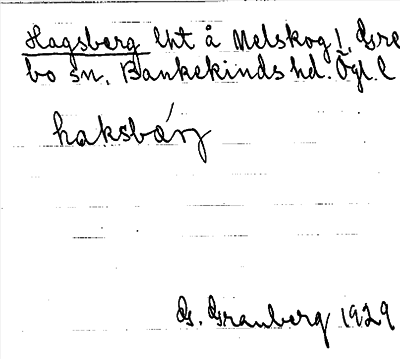 Hagsberg lht å Melskog, Gre
bo sn. Bankekinds hd. Ögl. l
haksbærj
G. Granberg 1929